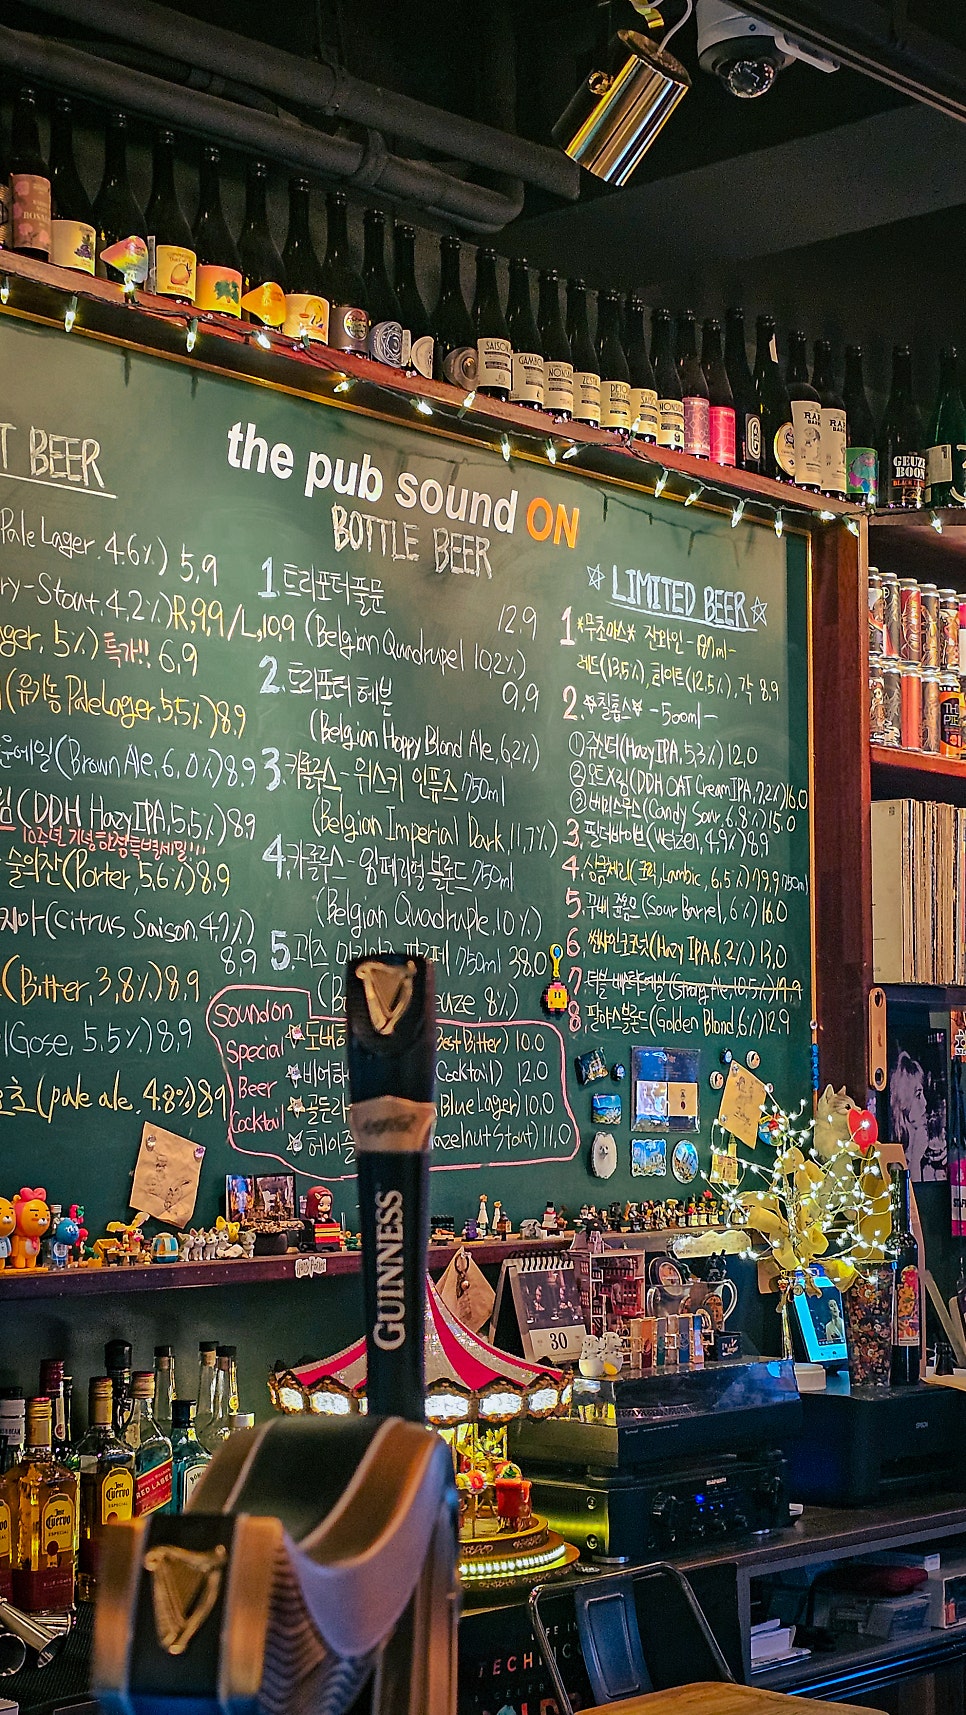 T BEER
Pale Lager, 4.6%) 5.9
ry-Stout, 4.2%) R,9.9/L,10.9
ger, 5%) 특가!! 6.9
(유기농 Pale Lager, 5.5%) 8.9
운에일 (Brown Ale, 6.0%) 8.9
(DDH Hazy IPA, 5.5%) 8.9
10주년 기념 한정 특별세일!!!
술의잔 (Porter, 5.6%) 8.9
(Citrus Saison, 4.7%)
8.9
(Bitter, 3.8%) 8.9
(Gose, 5.5%) 8.9
(pale ale, 4.8%) 8.9
the pub sound ON
BOTTLE BEER
1 트리포터풀문
12.9
(Belgian Quadrupel 10.2%)
2. 트리포터 헤븐
9.9
(Belgian Hoppy Blond Ale, 6.2%)
3. 카롤루스 - 위스키 인퓨즈 750ml
(Belgian Imperial Dark, 11.7%)
4. 카롤루스 - 임페리얼 블론드 750ml
(Belgian Quadruple, 10%)
5. 750ml 38.0
euze, 8%)
Sound on
Special
Beer
Cocktail
Best Bitter) 10.0
비어 Cocktail) 12.0
골든 Blue Lager) 10.0
헤이즐 azelnut Stout) 11.0
☆ LIMITED BEER ☆
1 *무초마스* 잔와인 -
레드(13.5%), 화이트(12.5%), 각 8.9
2. *칠홉스* -500ml-
① 주산터 (Hazy IPA, 5.3%) 12.0
② (DDH OAT Cream IPA, 7.2%) 16.0
③ 베리루스 (Candy Sour, 6.8%) 15.0
3. 필더바이브 (Weizen, 4.9%) 8.9
4. Lambic, 6.5%) 79.9 750ml
5. (Sour Barrel, 6%) 16.0
6. 썬샤인코코넛 (Hazy IPA, 6.2%) 13.0
7. (Strong Ale, 10.5%) 17.9
8. 필야스블론드 (Golden Blond, 6%) 12.9
SAISON
GEUZE
BOON
BLACK LABEL
GUINNESS
30
Jose
Cuervo
ESPECIAL
Jose
Cuervo
ESPECIAL
RED LABEL
Harry Potter
EPSON
LIFE IN
TECHNIC
A CELEBR